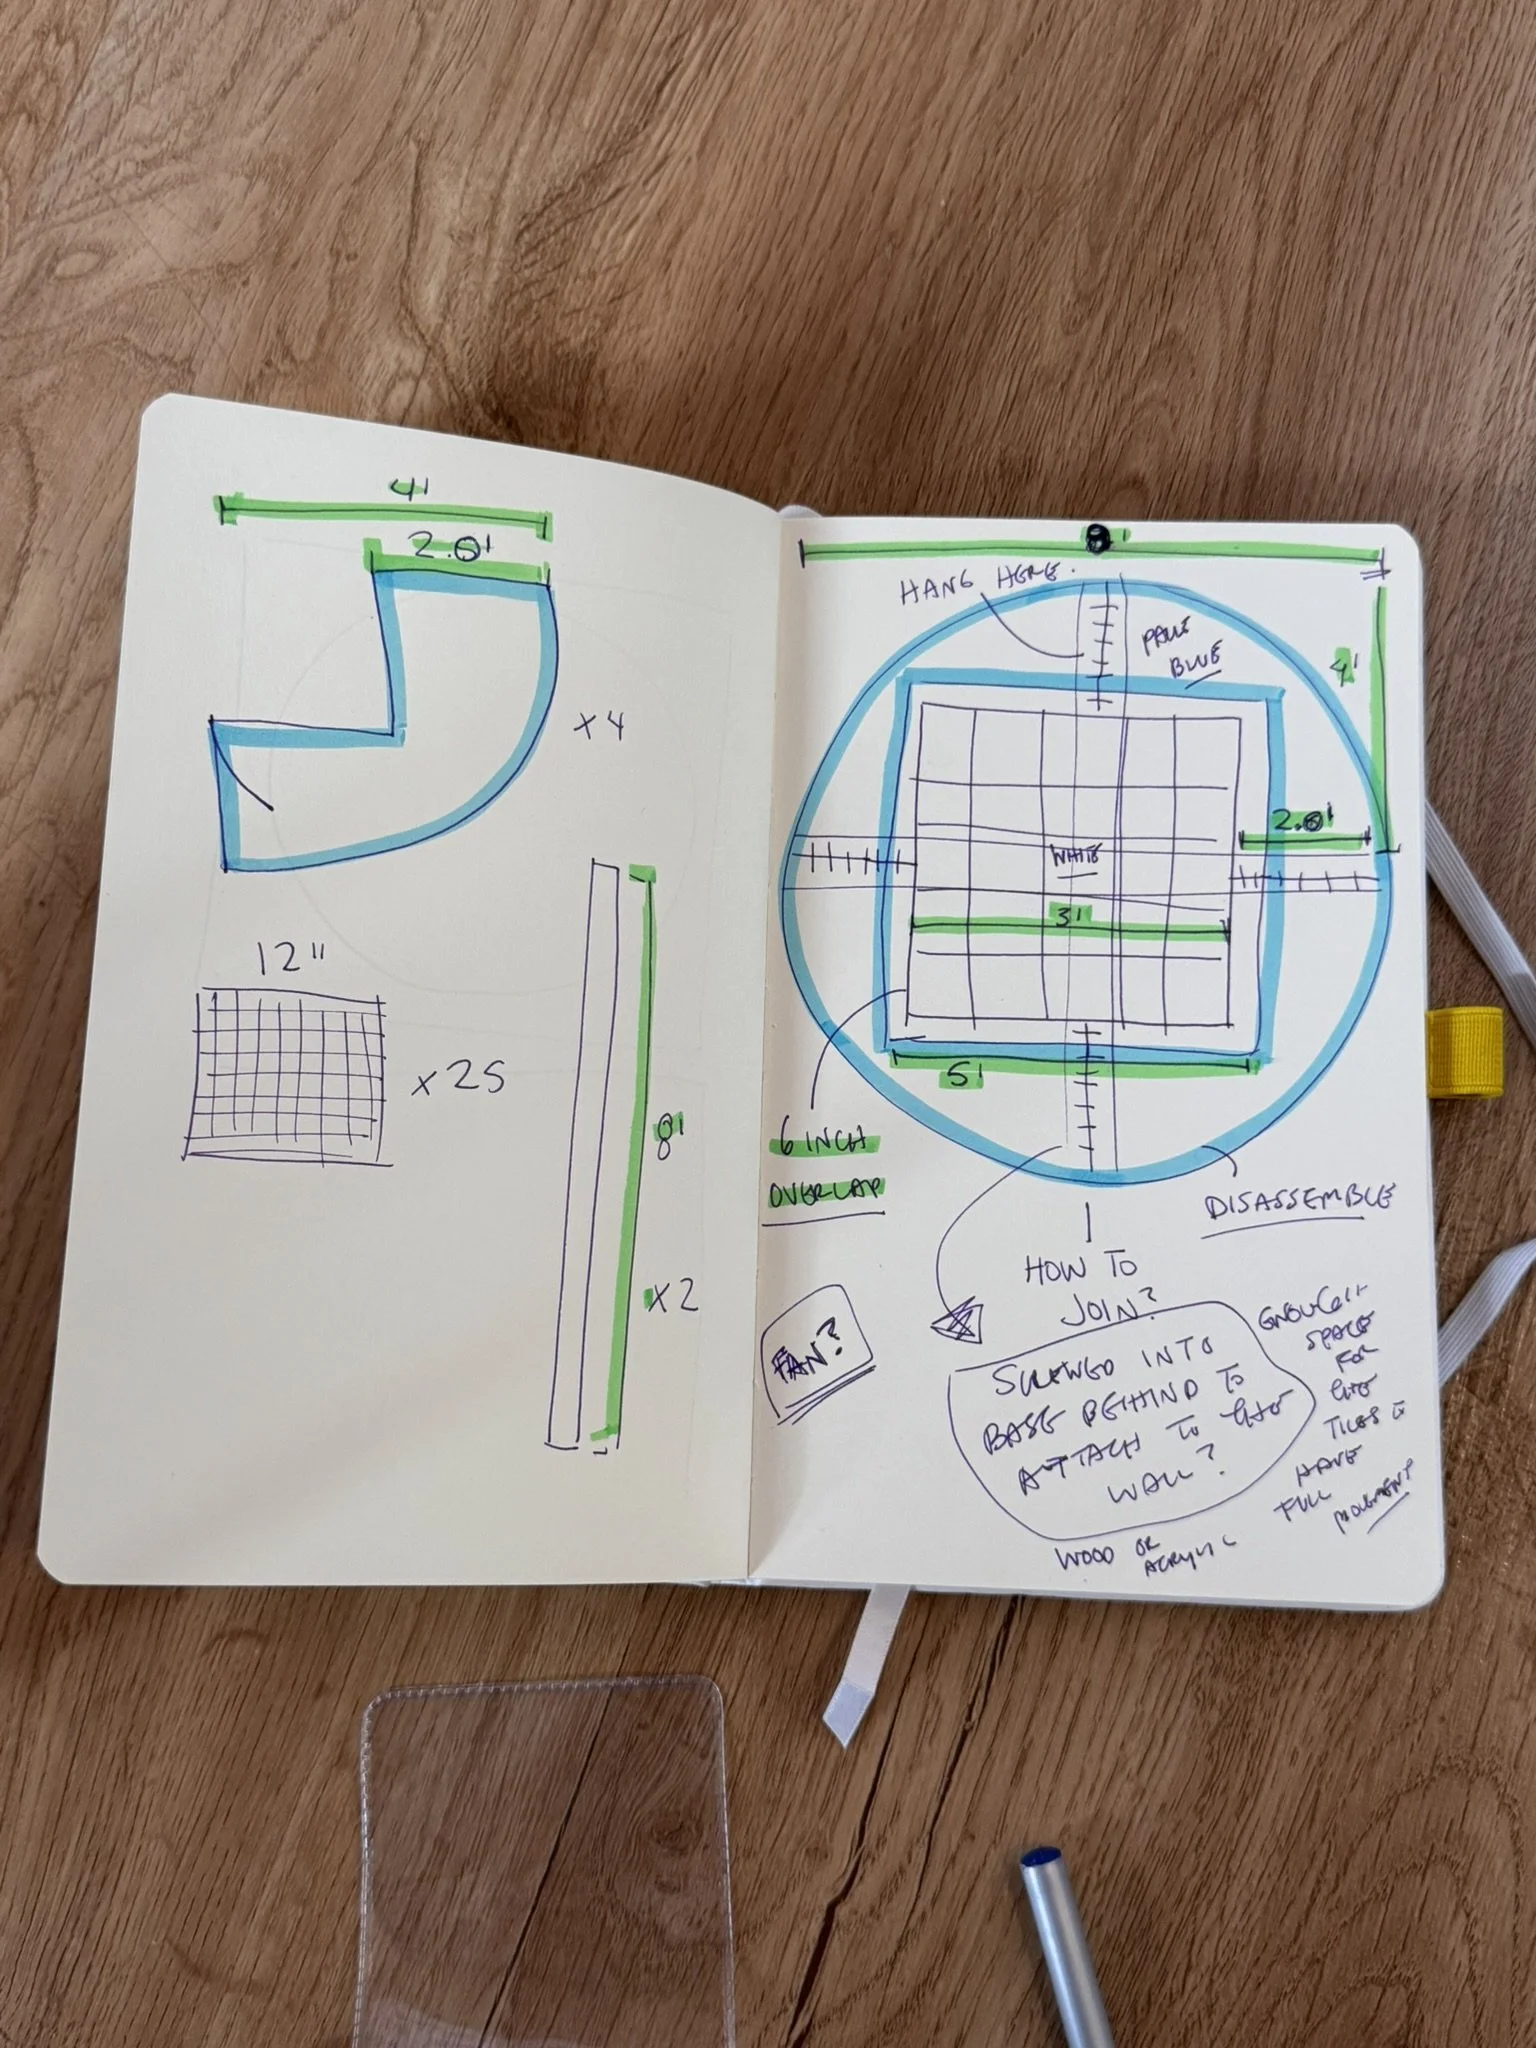 4'
2.0'
x 4
12"
x 25
8'
x 2
8'
HANG HERE.
PALE
BLUE
4'
2.0'
WHITE
3'
5'
6 INCH
OVERLAP
DISASSEMBLE
HOW TO
JOIN?
FAN?
SCREWED INTO
BASE BEHIND TO
ATTACH TO THE
WALL?
ENOUGH
SPACE
FOR
THE
TILES TO
HAVE
FULL
MOVEMENT
WOOD OR
ACRYLIC